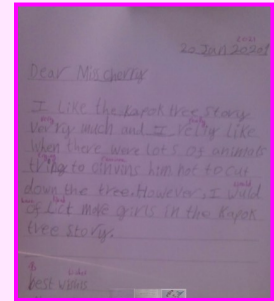 20 Jan 2020
Dear Miss cherry
I Like the kapok tree story
very much and I really like
when there were lots of animals
trying to him not to cut
down the tree. However, I
of more girls in the kapok
tree story.
best wishes